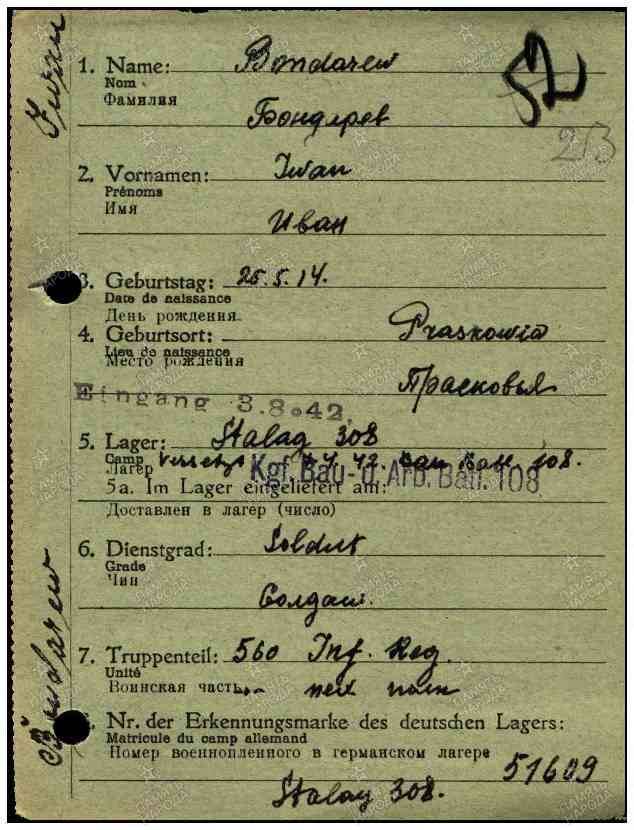 Iwan
Bondarew
52
213
1. Name: Bondarew
Nom
Фамилия
Бондарев
2. Vornamen: Iwan
Prénoms
Имя
Иван
3. Geburtstag: 25. 5. 14.
Date de naissance
День рождения
4. Geburtsort: Praskowia
Lieu de naissance
Место рождения
Прасковья
Eingang 3.8.42.
5. Lager: Stalag 308
Camp
Лагер
Kgf. Bau- u. Arb. Batl. 108
5a. Im Lager eingeliefert am:
Доставлен в лагер (число)
6. Dienstgrad: Soldat
Grade
Чин
Солдат.
7. Truppenteil: 560 Inf. Reg.
Unité
Воинская часть
Nr. der Erkennungsmarke des deutschen Lagers:
Matricule du camp allemand
Номер военнопленного в германском лагере
51609
Stalag 308.